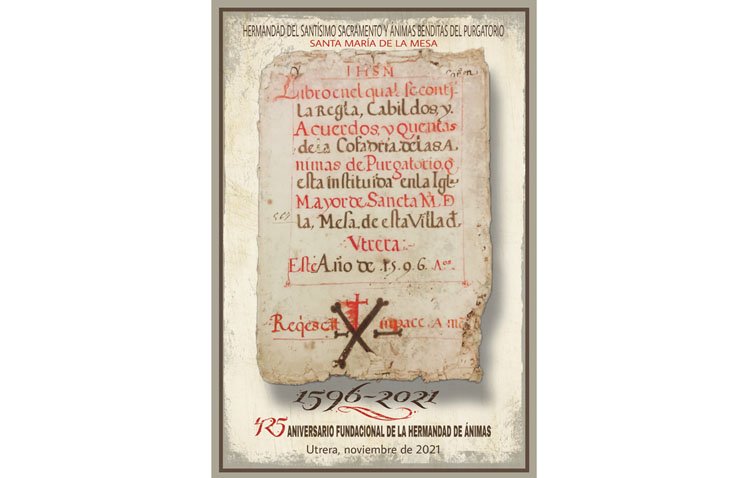 HERMANDAD DEL SANTÍSIMO SACRAMENTO Y ÁNIMAS BENDITAS DEL PURGATORIO
SANTA MARÍA DE LA MESA
IHSM
Libro en el qual se conti,
la Regla, Cabildos, y.
Acuerdos, y quentas
de la Cofadria. de las A,
nimas de Purgatorio, q̃
esta instituida en la Igle
Mayor de Sancta M. D
la, Mesa. de esta Villa d.
Vtrera:
Este Año de .1596. Aos.
Reqescãt impace. Amē
1596-2021
425 ANIVERSARIO FUNDACIONAL DE LA HERMANDAD DE ÁNIMAS
Utrera, noviembre de 2021